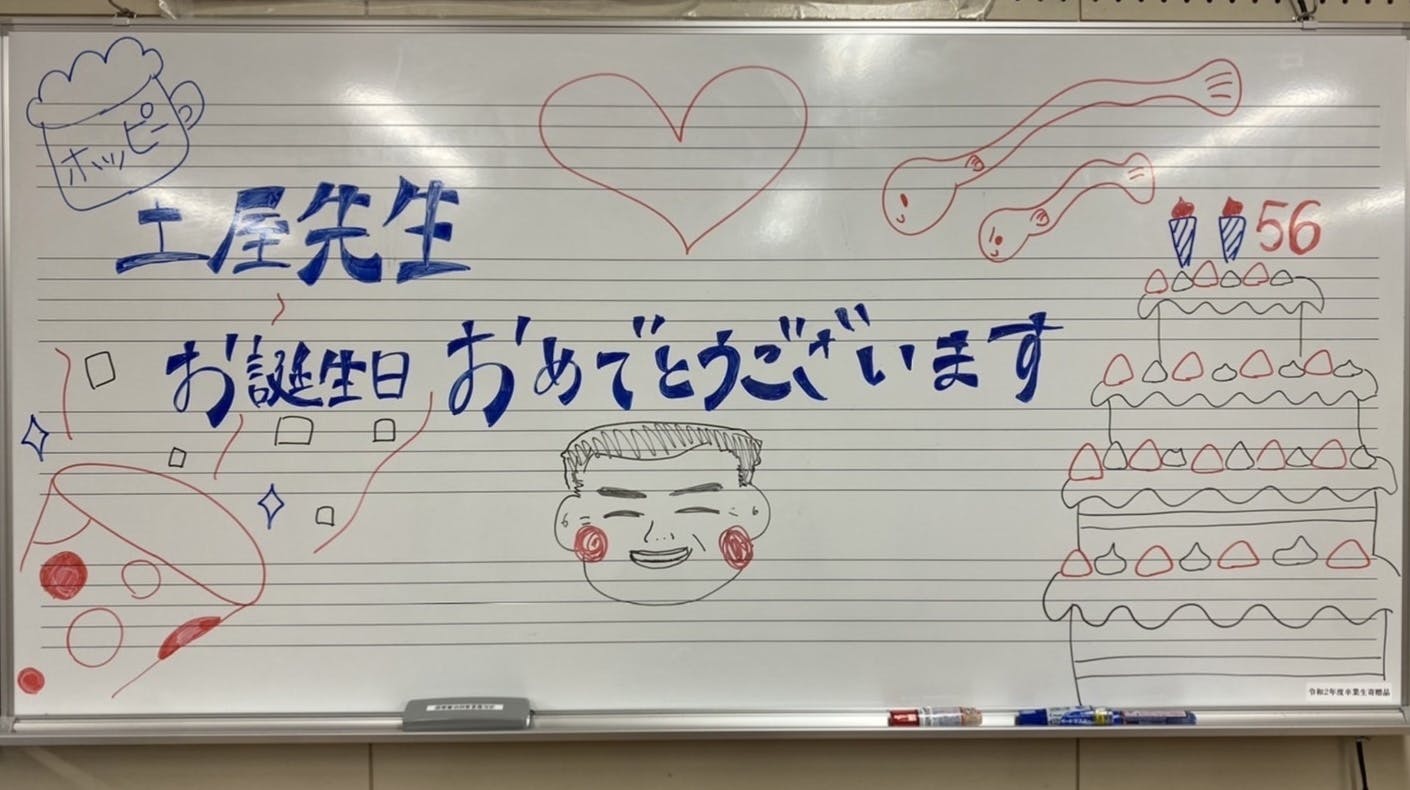 ホッピー
土屋先生
56
お誕生日おめでとうございます
令和2年度卒業生寄贈品